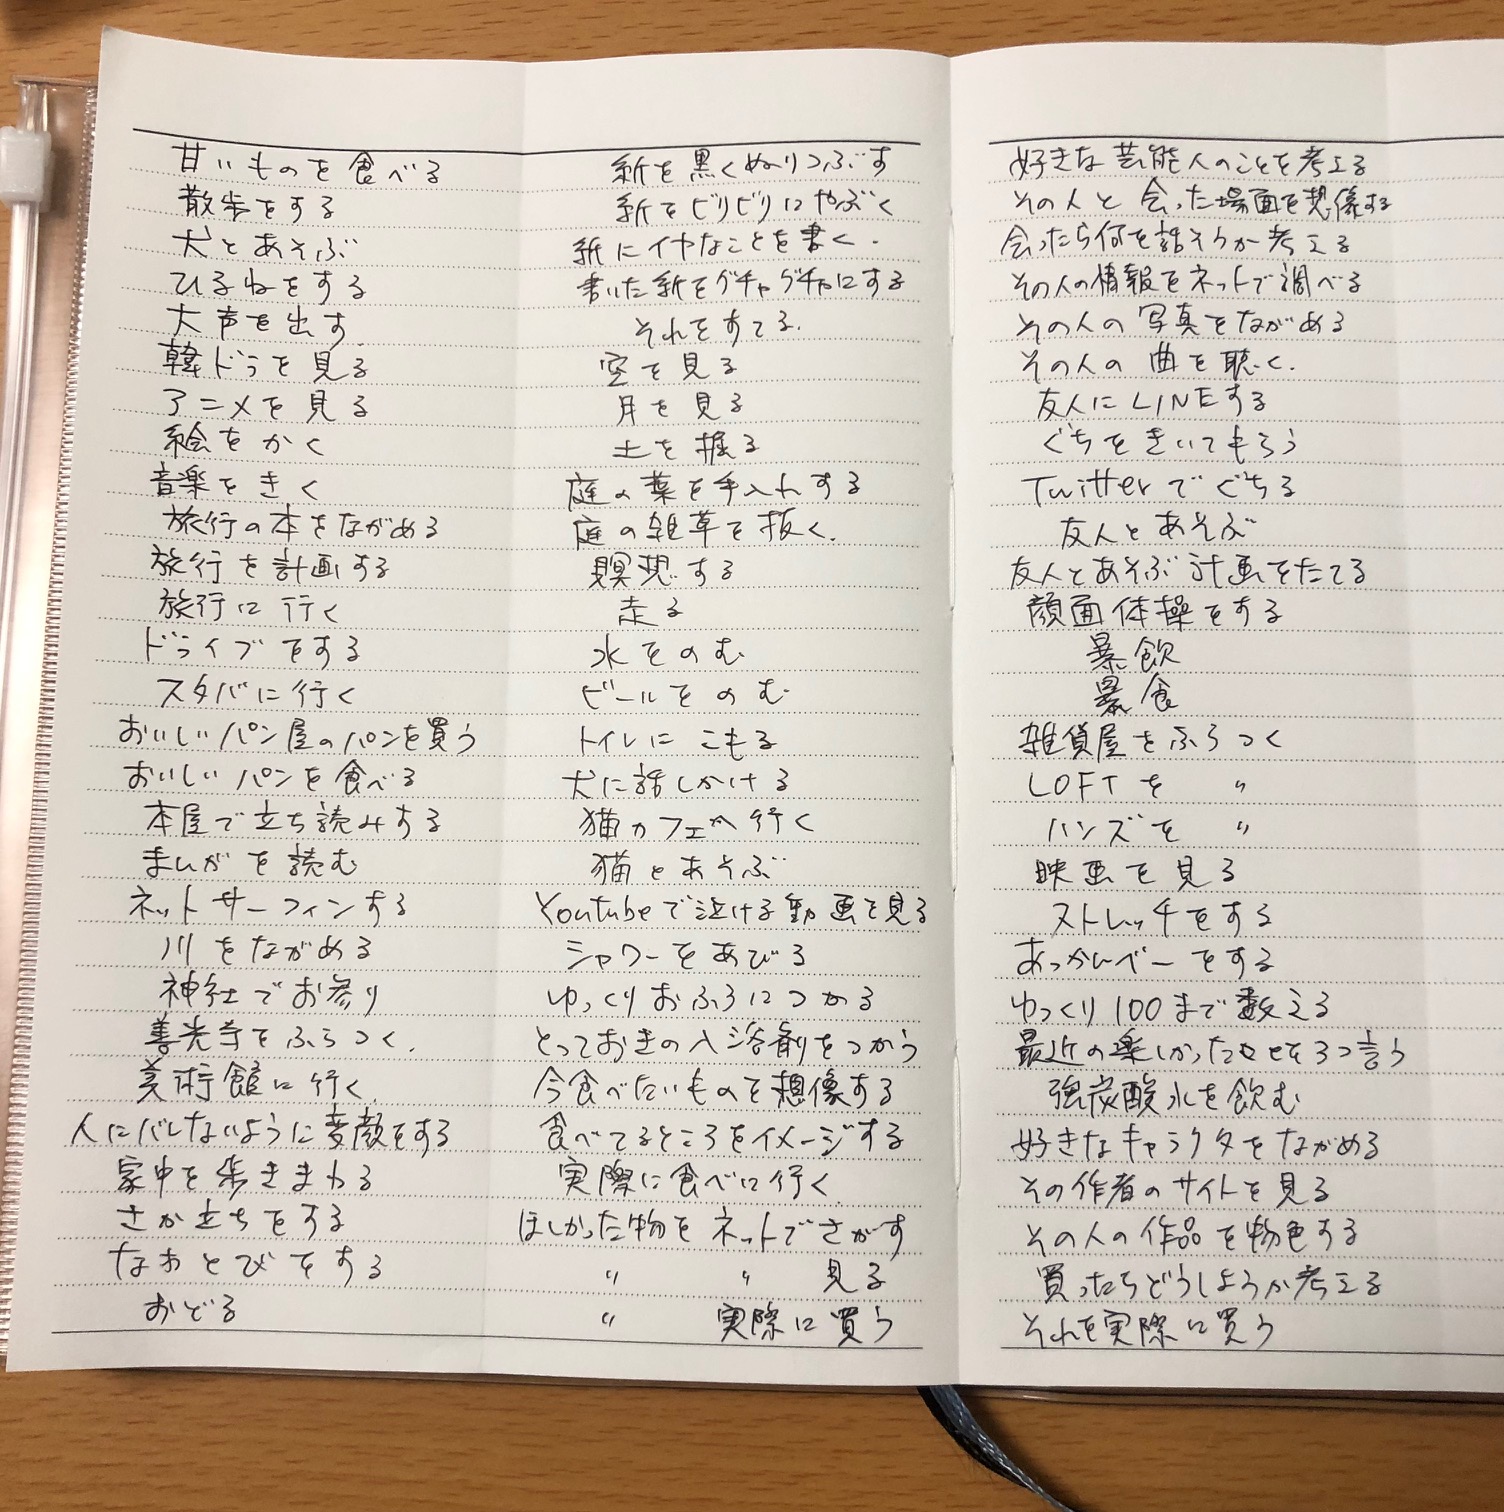 甘いものを食べる
散歩をする
犬とあそぶ
ひるねをする
大声を出す
韓ドラを見る
アニメを見る
絵をかく
音楽をきく
旅行の本をながめる
旅行を計画する
旅行に行く
ドライブをする
スタバに行く
おいしいパン屋のパンを買う
おいしいパンを食べる
本屋で立ち読みする
まんがを読む
ネットサーフィンする
川をながめる
神社でお参り
善光寺をふらつく.
美術館に行く
人にバレないように変顔をする
家中を歩きまわる
さか立ちをする
なわとびをする
おどる
紙を黒くぬりつぶす
紙をビリビリにやぶく
紙にイヤなことを書く.
書いた紙をグチャグチャにする
それをすてる.
空を見る
月を見る
土を掘る
庭の葉を手入れする
庭の雑草を抜く.
瞑想する
走る
水をのむ
ビールをのむ
トイレにこもる
犬に話しかける
猫カフェへ行く
猫とあそぶ
Youtubeで泣ける動画を見る
シャワーをあびる
ゆっくりおふろにつかる
とっておきの入浴剤をつかう
今食べたいものを想像する
食べてるところをイメージする
実際に食べに行く
ほしかった物をネットでさがす
〃 〃 見る
〃 実際に買う
好きな芸能人のことを考える
その人と会った場面を想像する
会ったら何を話そうか考える
その人の情報をネットで調べる
その人の写真をながめる
その人の曲を聴く.
友人にLINEする
ぐちをきいてもらう
Twitterでぐちる
友人とあそぶ
友人とあそぶ計画をたてる
顔面体操をする
暴飲
暴食
雑貨屋をふらつく
LOFTを 〃
ハンズを 〃
映画を見る
ストレッチをする
あっかんべーをする
ゆっくり100まで数える
最近の楽しかったことを3つ言う
強炭酸水を飲む
好きなキャラクタをながめる
その作者のサイトを見る
その人の作品を物色する
買ったらどうしようか考える
それを実際に買う